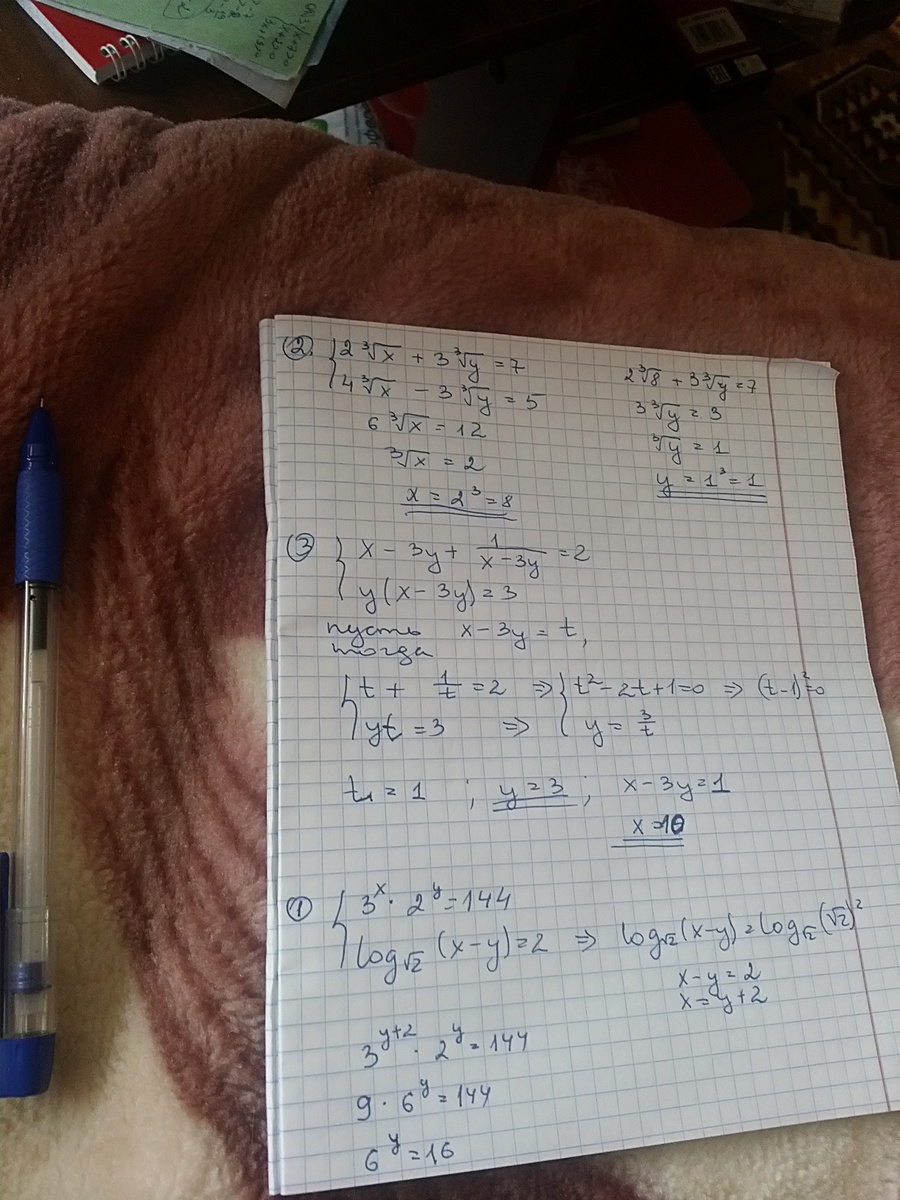 ② { 2∛x + 3∛y = 7
4∛x - 3∛y = 5
6∛x = 12
∛x = 2
x = 2³ = 8
2∛8 + 3∛y = 7
3∛y = 3
∛y = 1
y = 1³ = 1
③ { x - 3y + 1/(x-3y) = 2
y(x - 3y) = 3
пусть x - 3y = t,
тогда
{ t + 1/t = 2 ⇒ { t² - 2t + 1 = 0 ⇒ (t-1)² = 0
yt = 3 ⇒ y = 3/t
t₁ = 1 ; y = 3 ; x - 3y = 1
x = 10
① { 3^x · 2^y = 144
log_√2 (x-y) = 2 ⇒ log_√2 (x-y) = log_√2 (√2)²
x - y = 2
x = y + 2
3^(y+2) · 2^y = 144
9 · 6^y = 144
6^y = 16